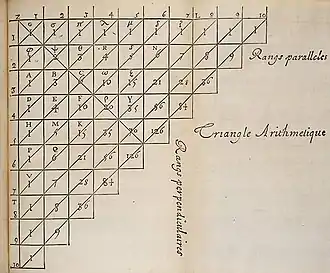 Z 1 2 3 4 5 6 L. 8 9 10
σ π λ μ δ
1 1 1 1 1 1 1 1 1 1 1
φ ψ θ R S N
2 1 2 3 4 5 6 7 8 9
Rangs paralleles
A B C ω ξ
3 1 3 6 10 15 21 28 36
D E F ρ Y
4 1 4 10 20 35 56 84
H M K
5 1 5 15 35 70 126
Triangle Arithmetique
P Q
6 1 6 21 56 126
Rangs perpendiculaires
V
7 1 7 28 84
8 1 8 36
9 1 9
10 1